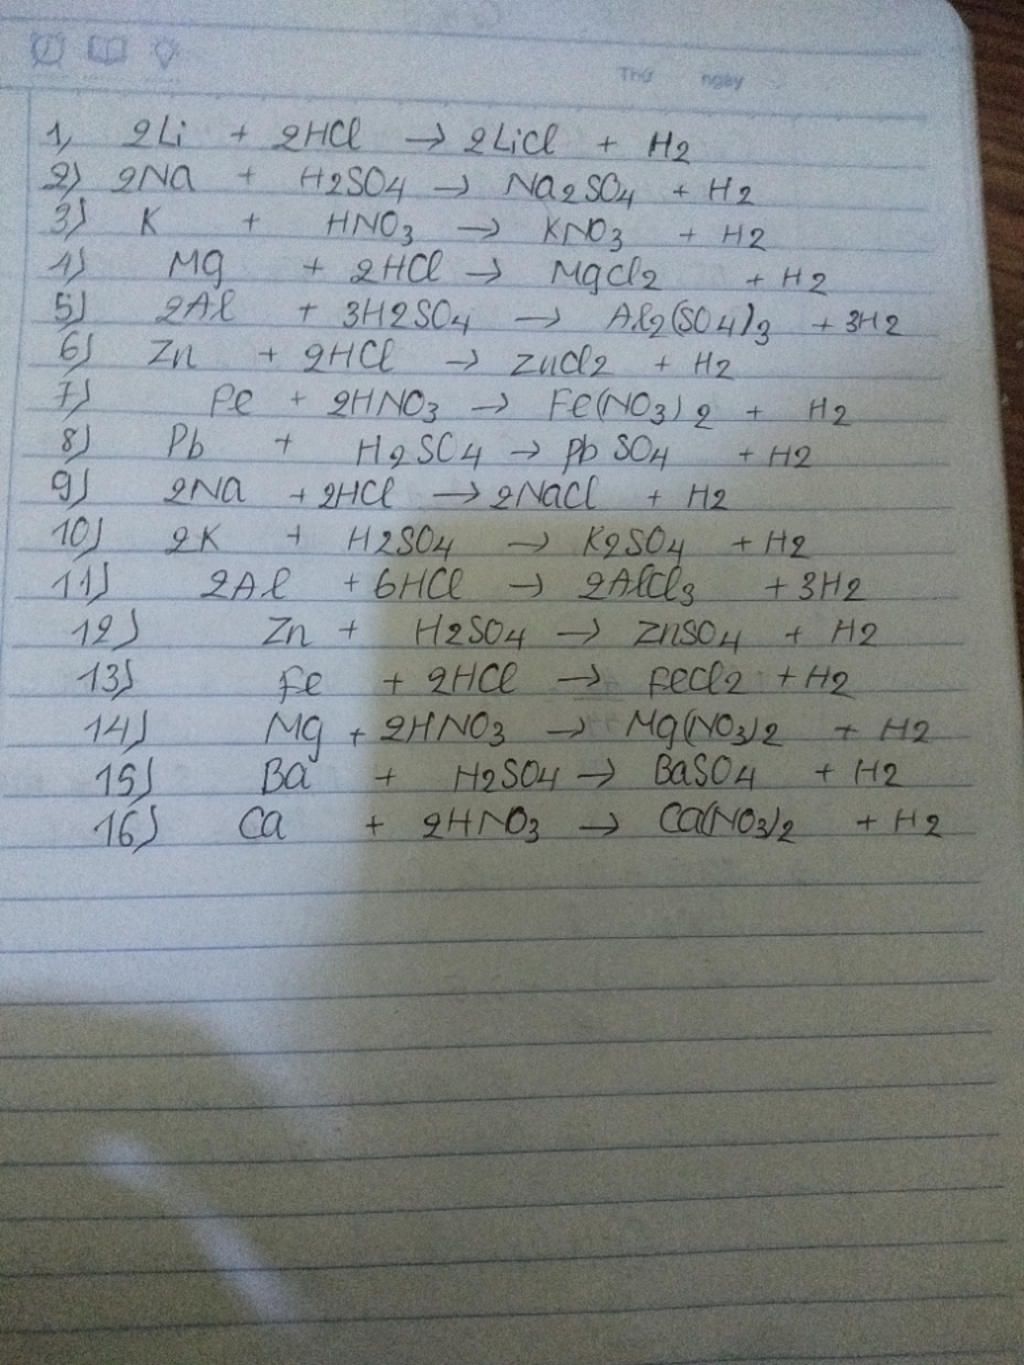 Thứ ngày
1, 2Li + 2HCl → 2LiCl + H2
2) 2Na + H2SO4 → Na2SO4 + H2
3) K + HNO3 → KNO3 + H2
4) Mg + 2HCl → MgCl2 + H2
5) 2Al + 3H2SO4 → Al2(SO4)3 + 3H2
6) Zn + 2HCl → ZnCl2 + H2
7) Fe + 2HNO3 → Fe(NO3)2 + H2
8) Pb + H2SO4 → PbSO4 + H2
9) 2Na + 2HCl → 2NaCl + H2
10) 2K + H2SO4 → K2SO4 + H2
11) 2Al + 6HCl → 2AlCl3 + 3H2
12) Zn + H2SO4 → ZnSO4 + H2
13) Fe + 2HCl → FeCl2 + H2
14) Mg + 2HNO3 → Mg(NO3)2 + H2
15) Ba + H2SO4 → BaSO4 + H2
16) Ca + 2HNO3 → Ca(NO3)2 + H2